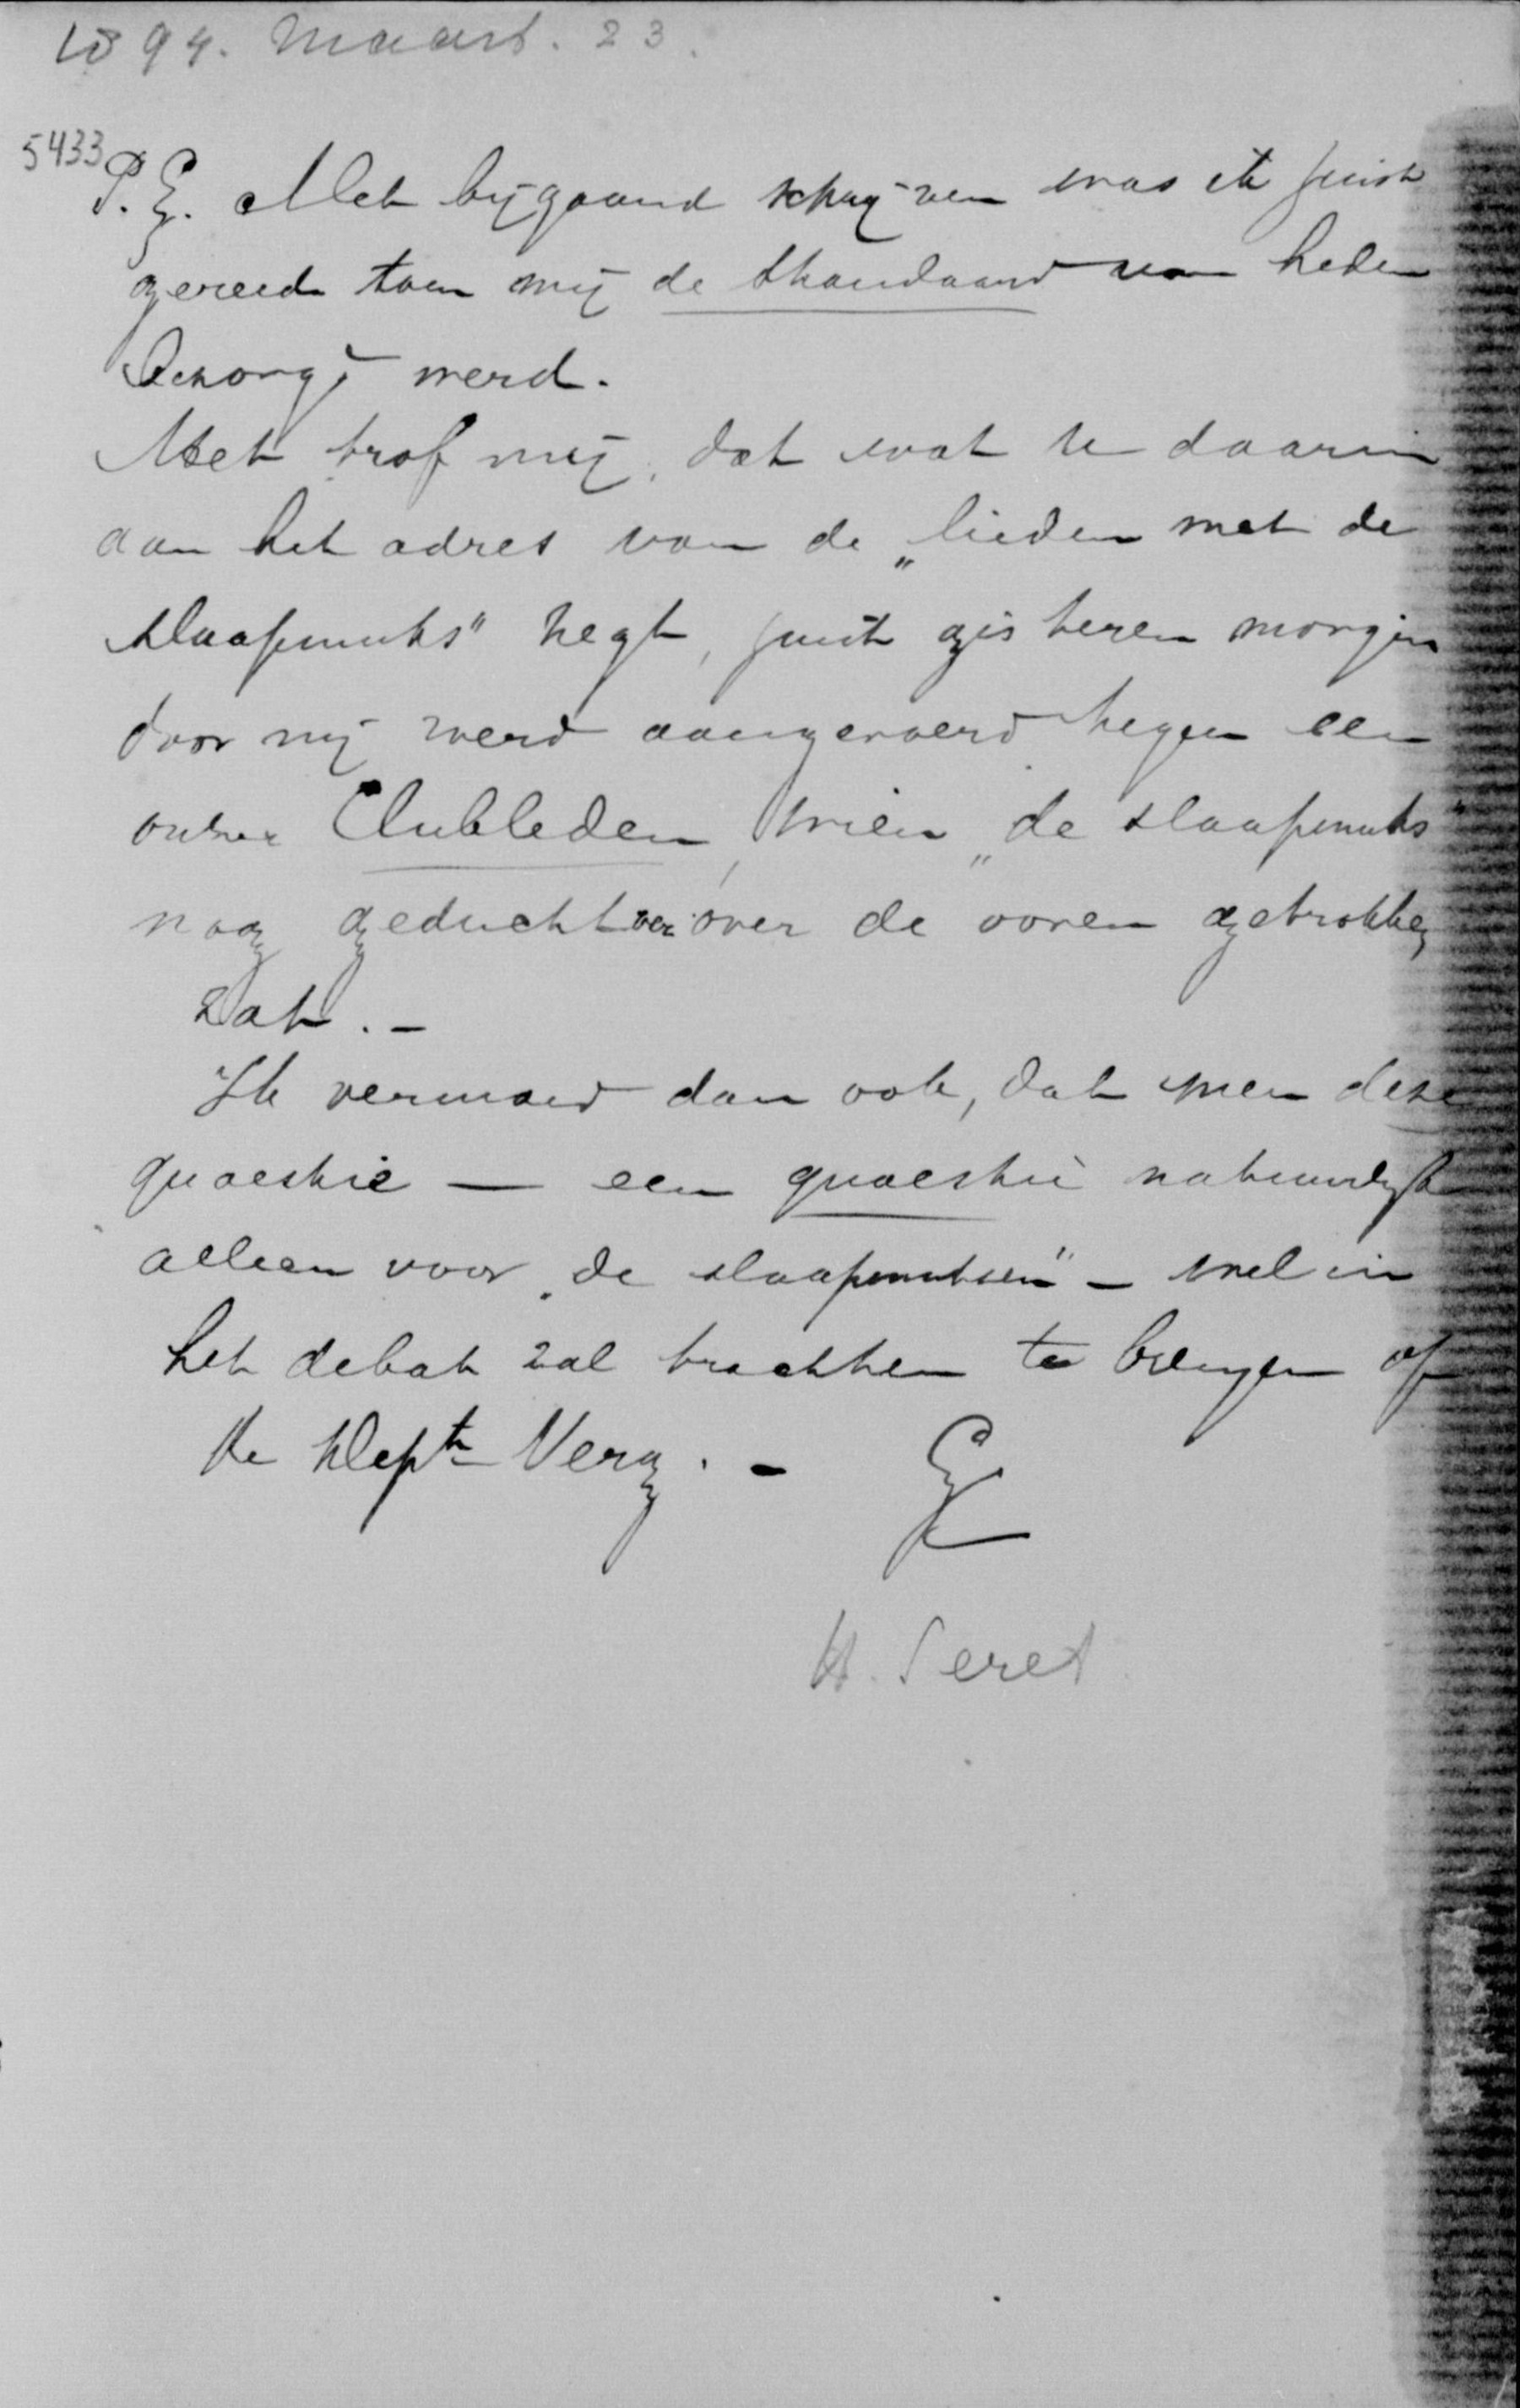 1894. Maart. 23.
5433
P.S. Met bijgaand schrijven was ik juist
gereed toen mij de Standaard van heden
bezorgd werd.
Het trof mij, dat wat U daarin
aan het adres van de „lieden met de
slaapmuts" zegt, juist gisteren morgen
door mij werd aangevoerd tegen een
onzer Clubleden, wien „de slaapmuts"
nog geducht ver over de ooren getrokken
zat. -
Ik vermoed dan ook, dat men deze
quaestie — een quaestie natuurlijk
alleen voor „de slaapmutsen" - wel in
het debat zal trachten te brengen op
de Verg. -
H. Seret